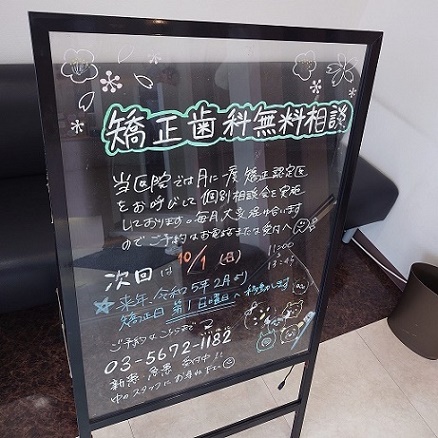 矯正歯科無料相談
当医院では月に一度 矯正認定医
をお呼びして 個別相談会を実施
しております。毎月大変混み合います
のでご予約はお電話または受付へ
次回は 10/1 (日) 11:00
13:45
☆来年、令和5年2月より
矯正日 第1日曜日へ移動します
ご予約はこちらまで
03-5672-1182
新患・急患 受付中!!
中のスタッフにお尋ね下さい